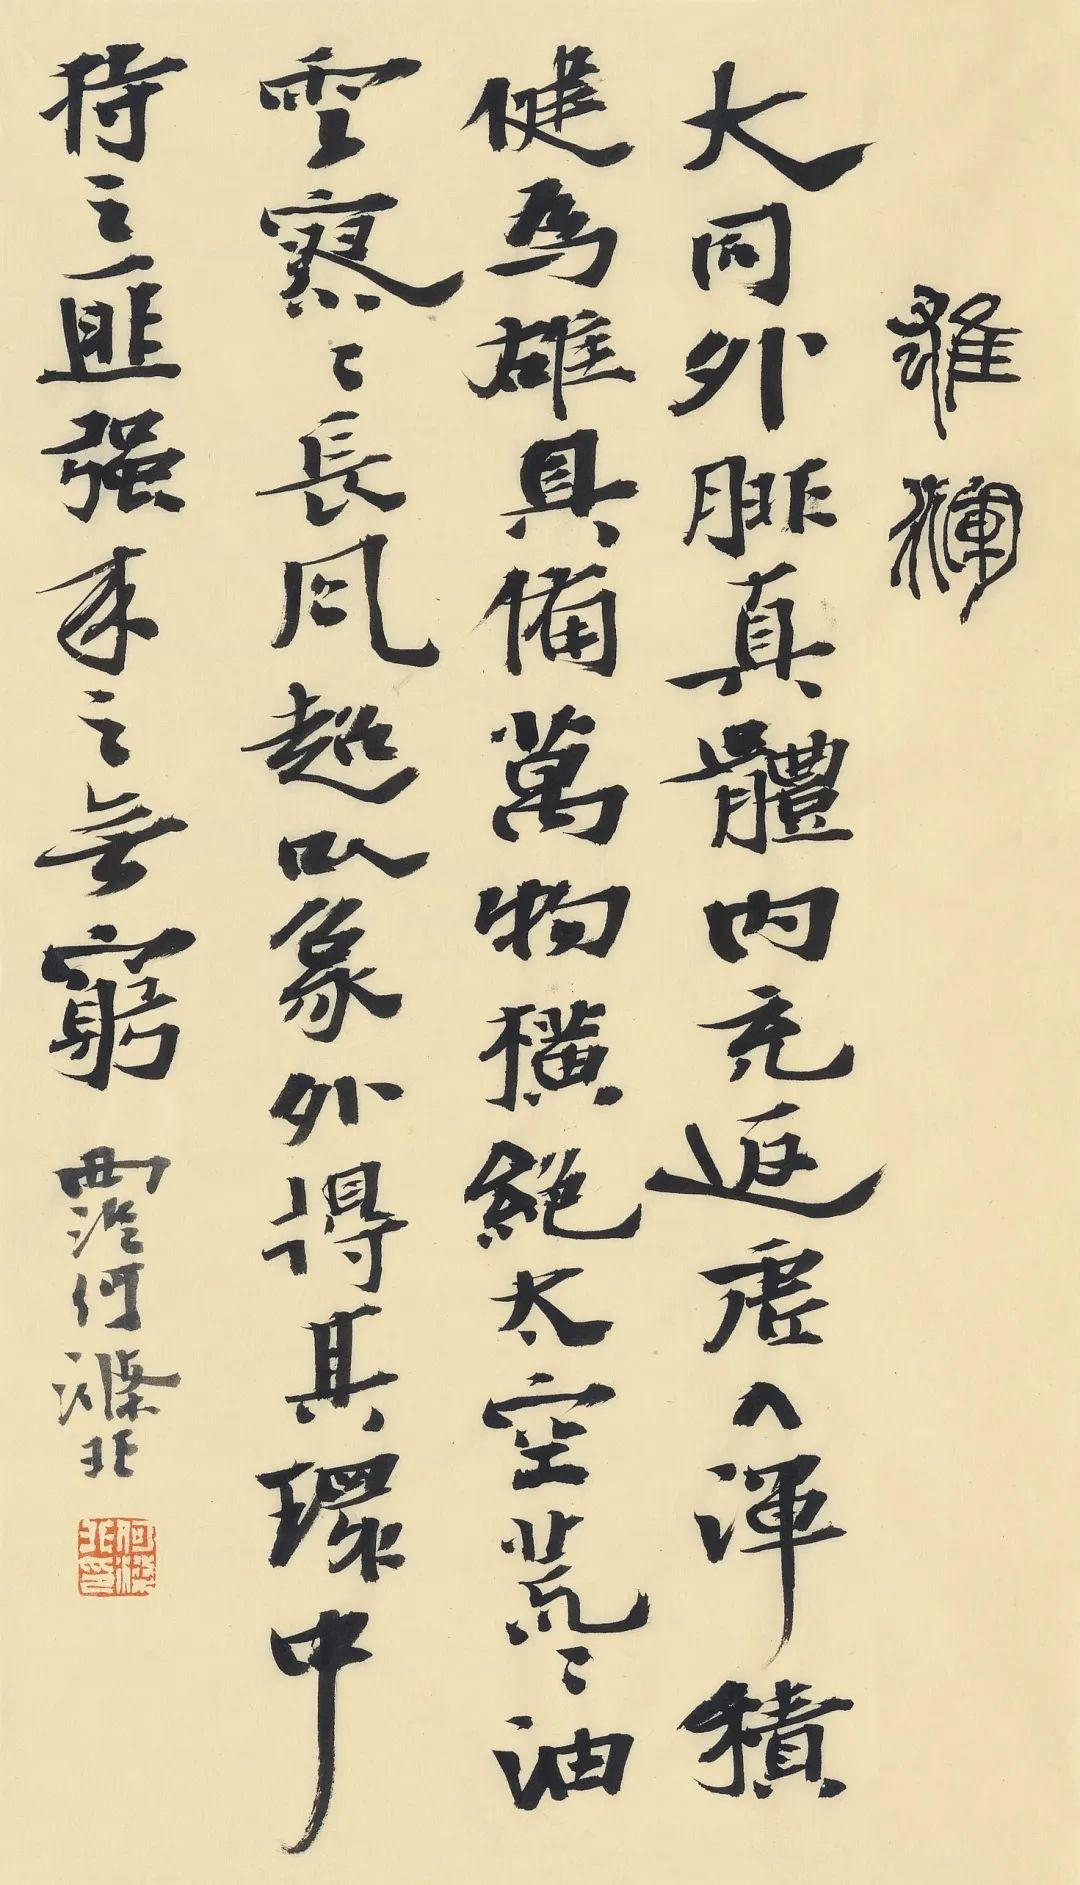 雄渾
大同外腓真體内充返虛入渾積
健為雄具備萬物橫絕太空荒〻油
雲寥〻長風超以象外得其環中
持之匪强来之無窮
西泠何滌非
何滌非印